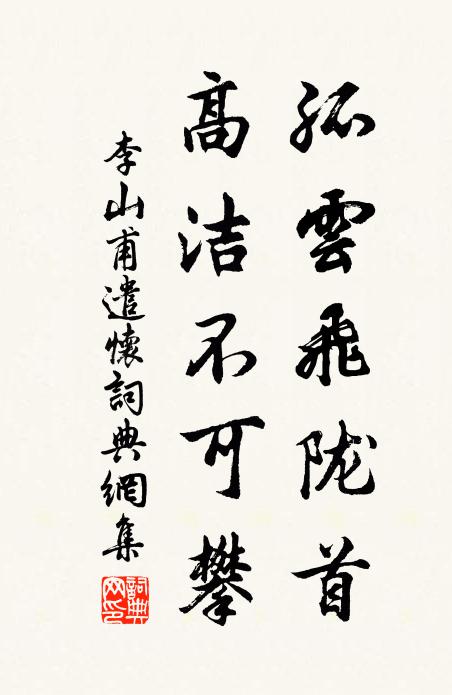 孤雲飛陇首
高洁不可攀
李山甫遣懷詞典網集
詞典網印